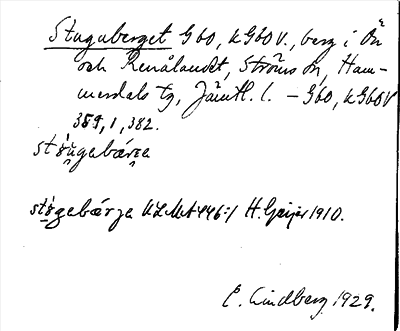 Stuguberget G60, kG60V., berg i Ön
och Renålandet, Ströms sn, Ham-
merdals tg, Jämtl. l. – G60, kG60V
389, 1, 382.
stúgabárɛa
stúgebárʒa ULMA 446:1 H. Geijer 1910.
E. Lindberg 1929.